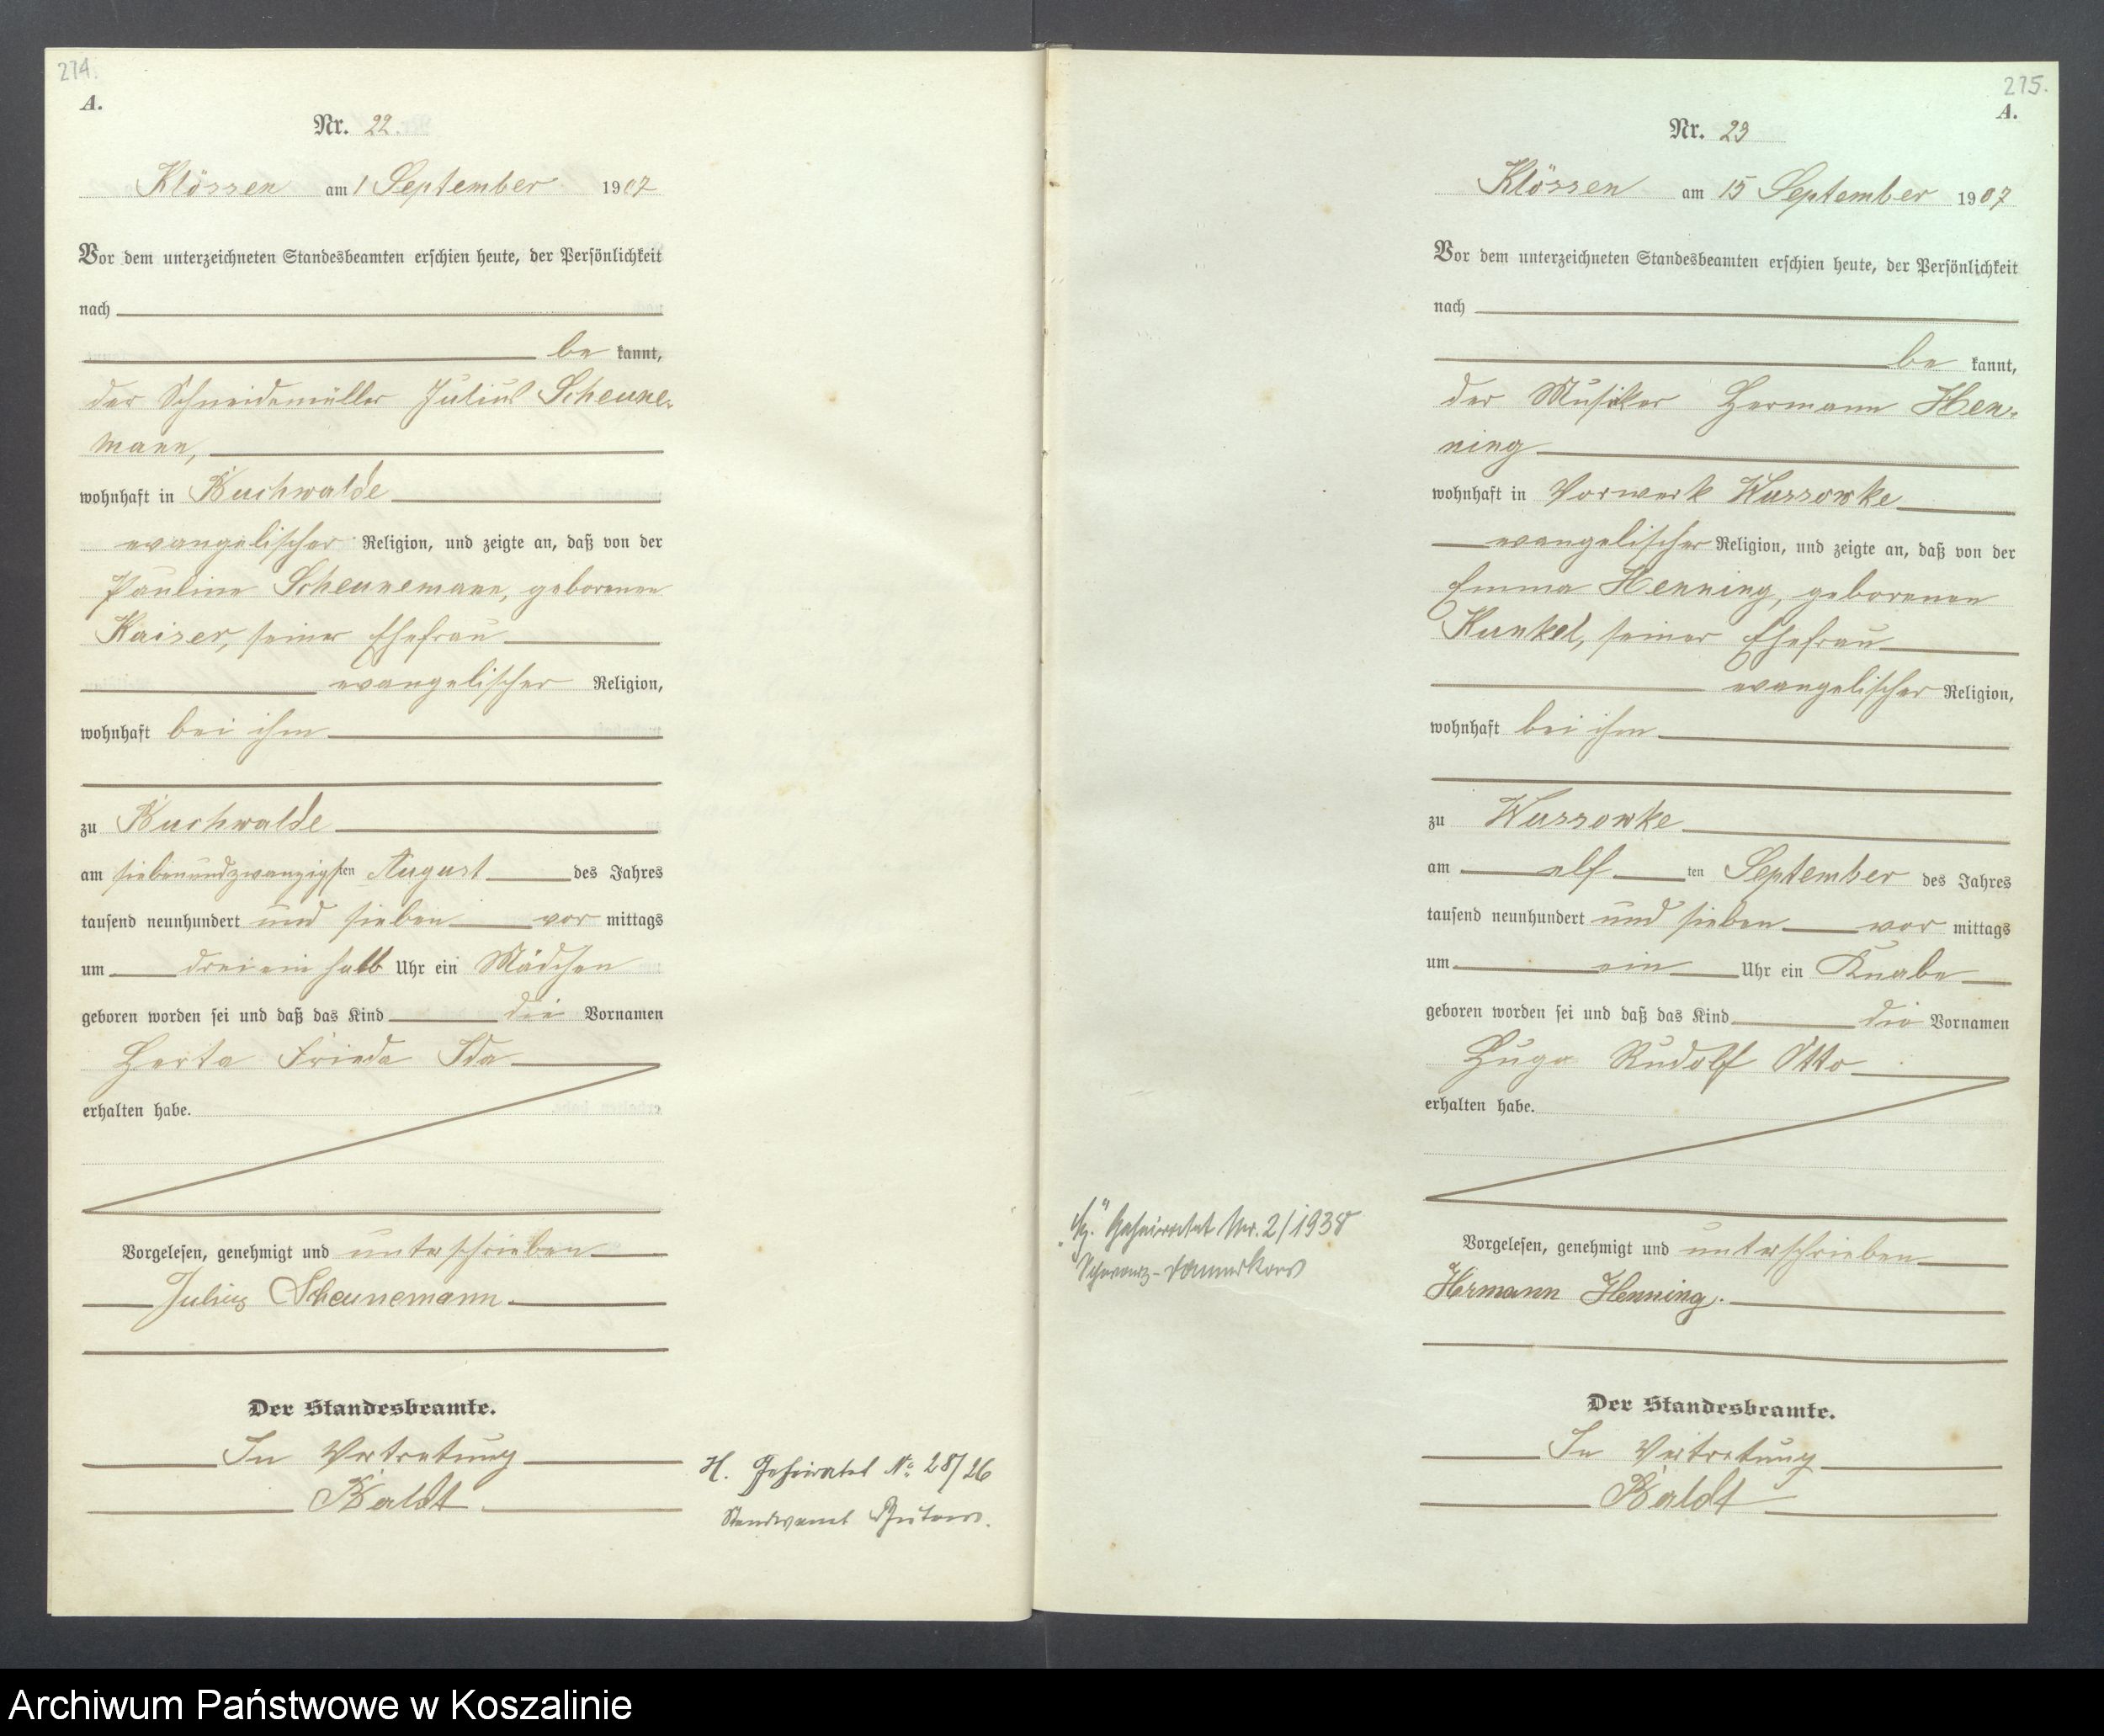 274.
A.
Nr. 22.
Klössen am 1 September 1907
Vor dem unterzeichneten Standesbeamten erschien heute, der Persönlichkeit
nach
be kannt,
der Schneidemüller Julius Scheune-
mann,
wohnhaft in Buchwalde
evangelischer Religion, und zeigte an, daß von der
Pauline Scheunemann, geborenen
Kaiser, seiner Ehefrau
evangelischer Religion,
wohnhaft bei ihm
zu Buchwalde
am siebenundzwanzigsten August des Jahres
tausend neunhundert und sieben vor mittags
um drei ein halb Uhr ein Mädchen
geboren worden sei und daß das Kind die Vornamen
Herta Frieda Ida
erhalten habe.
Vorgelesen, genehmigt und unterschrieben
Julius Scheunemann.
Der Standesbeamte.
In Vertretung
Baldt
H. Geheiratet No 28/26
Standesamt Bütow.
275.
A.
Nr. 23
Klössen am 15 September 1907
Vor dem unterzeichneten Standesbeamten erschien heute, der Persönlichkeit
nach
be kannt,
der Musiker Hermann Hen-
ning
wohnhaft in Vorwerk Wussowke
evangelischer Religion, und zeigte an, daß von der
Emma Henning, geborenen
Kunkel, seiner Ehefrau
evangelischer Religion,
wohnhaft bei ihm
zu Wussowke
am elf ten September des Jahres
tausend neunhundert und sieben vor mittags
um ein Uhr ein Knabe
geboren worden sei und daß das Kind die Vornamen
Hugo Rudolf Otto
erhalten habe.
Vorgelesen, genehmigt und unterschrieben
Hermann Henning.
Der Standesbeamte.
In Vertretung
Baldt
Geheiratet Nr. 2/1938
Archiwum Państwowe w Koszalinie